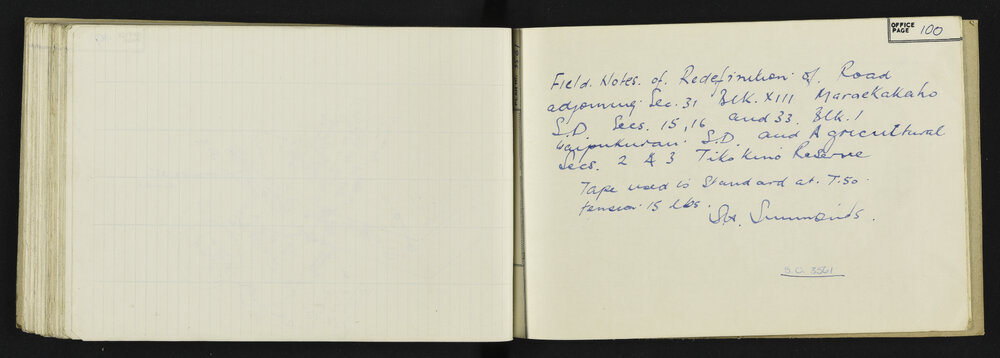 OFFICE PAGE 100
Field Notes of Redefinition of Road
adjoining Sec. 31 Blk. XIII Maraekakaho
S.D. Secs. 15, 16 and 33 Blk. 1
Waipukurau S.D. and Agricultural
Secs. 2 & 3 Tikokino Reserve
Tape used is Standard at T.50.
tension 15 lbs.
Simmonds.
S.O. 3561